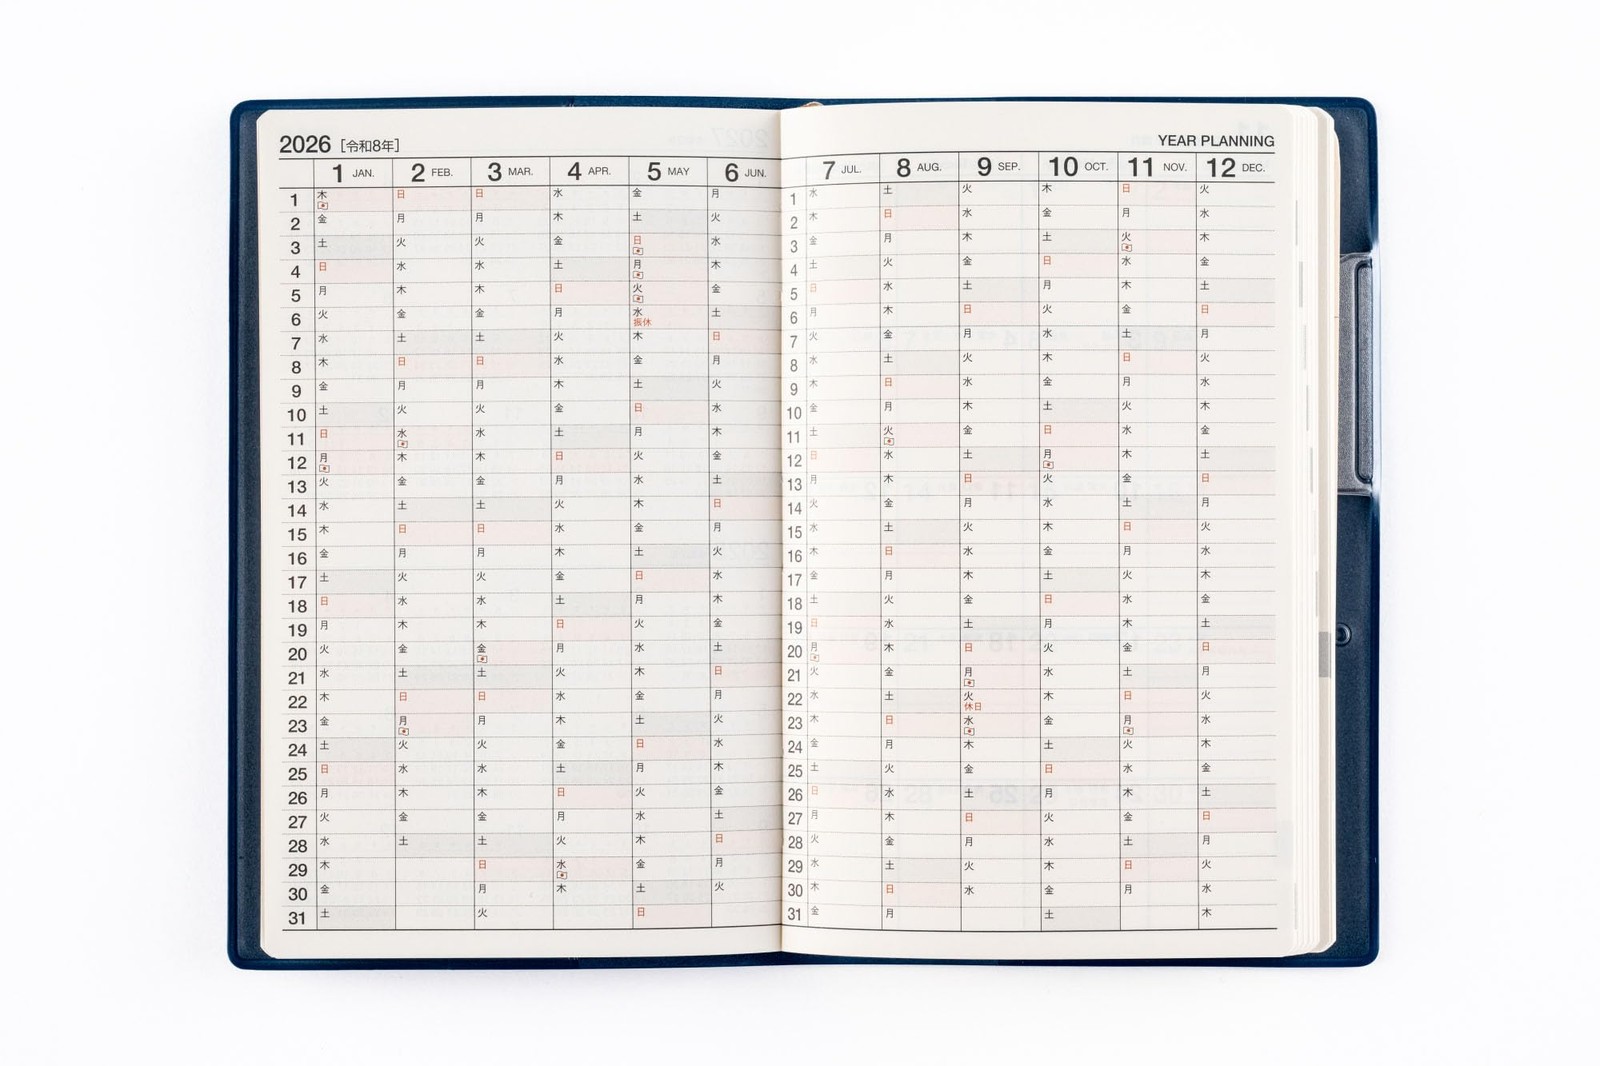 2026 [令和8年] YEAR PLANNING
1 JAN. 2 FEB. 3 MAR. 4 APR. 5 MAY 6 JUN. 7 JUL. 8 AUG. 9 SEP. 10 OCT. 11 NOV. 12 DEC.
1 木 日 日 水 金 月 1 水 土 火 木 日 火
2 金 月 月 木 土 火 2 木 日 水 金 月 水
3 土 火 火 金 日 水 3 金 月 木 土 火 木
4 日 水 水 土 月 木 4 土 火 金 日 水 金
5 月 木 木 日 火 金 5 日 水 土 月 木 土
6 火 金 金 月 水 振休 土 6 月 木 日 火 金 日
7 水 土 土 火 木 日 7 火 金 月 水 土 月
8 木 日 日 水 金 月 8 水 土 火 木 日 火
9 金 月 月 木 土 火 9 木 日 水 金 月 水
10 土 火 火 金 日 水 10 金 月 木 土 火 木
11 日 水 水 土 月 木 11 土 火 金 日 水 金
12 月 木 木 日 火 金 12 日 水 土 月 木 土
13 火 金 金 月 水 土 13 月 木 日 火 金 日
14 水 土 土 火 木 日 14 火 金 月 水 土 月
15 木 日 日 水 金 月 15 水 土 火 木 日 火
16 金 月 月 木 土 火 16 木 日 水 金 月 水
17 土 火 火 金 日 水 17 金 月 木 土 火 木
18 日 水 水 土 月 木 18 土 火 金 日 水 金
19 月 木 木 日 火 金 19 日 水 土 月 木 土
20 火 金 金 月 水 土 20 月 木 日 火 金 日
21 水 土 土 火 木 日 21 火 金 月 水 土 月
22 木 日 日 水 金 月 22 水 土 火 休日 木 日 火
23 金 月 月 木 土 火 23 木 日 水 金 月 水
24 土 火 火 金 日 水 24 金 月 木 土 火 木
25 日 水 水 土 月 木 25 土 火 金 日 水 金
26 月 木 木 日 火 金 26 日 水 土 月 木 土
27 火 金 金 月 水 土 27 月 木 日 火 金 日
28 水 土 土 火 木 日 28 火 金 月 水 土 月
29 木 日 水 金 月 29 水 土 火 木 日 火
30 金 月 木 土 火 30 木 日 水 金 月 水
31 土 火 日 31 金 月 土 木